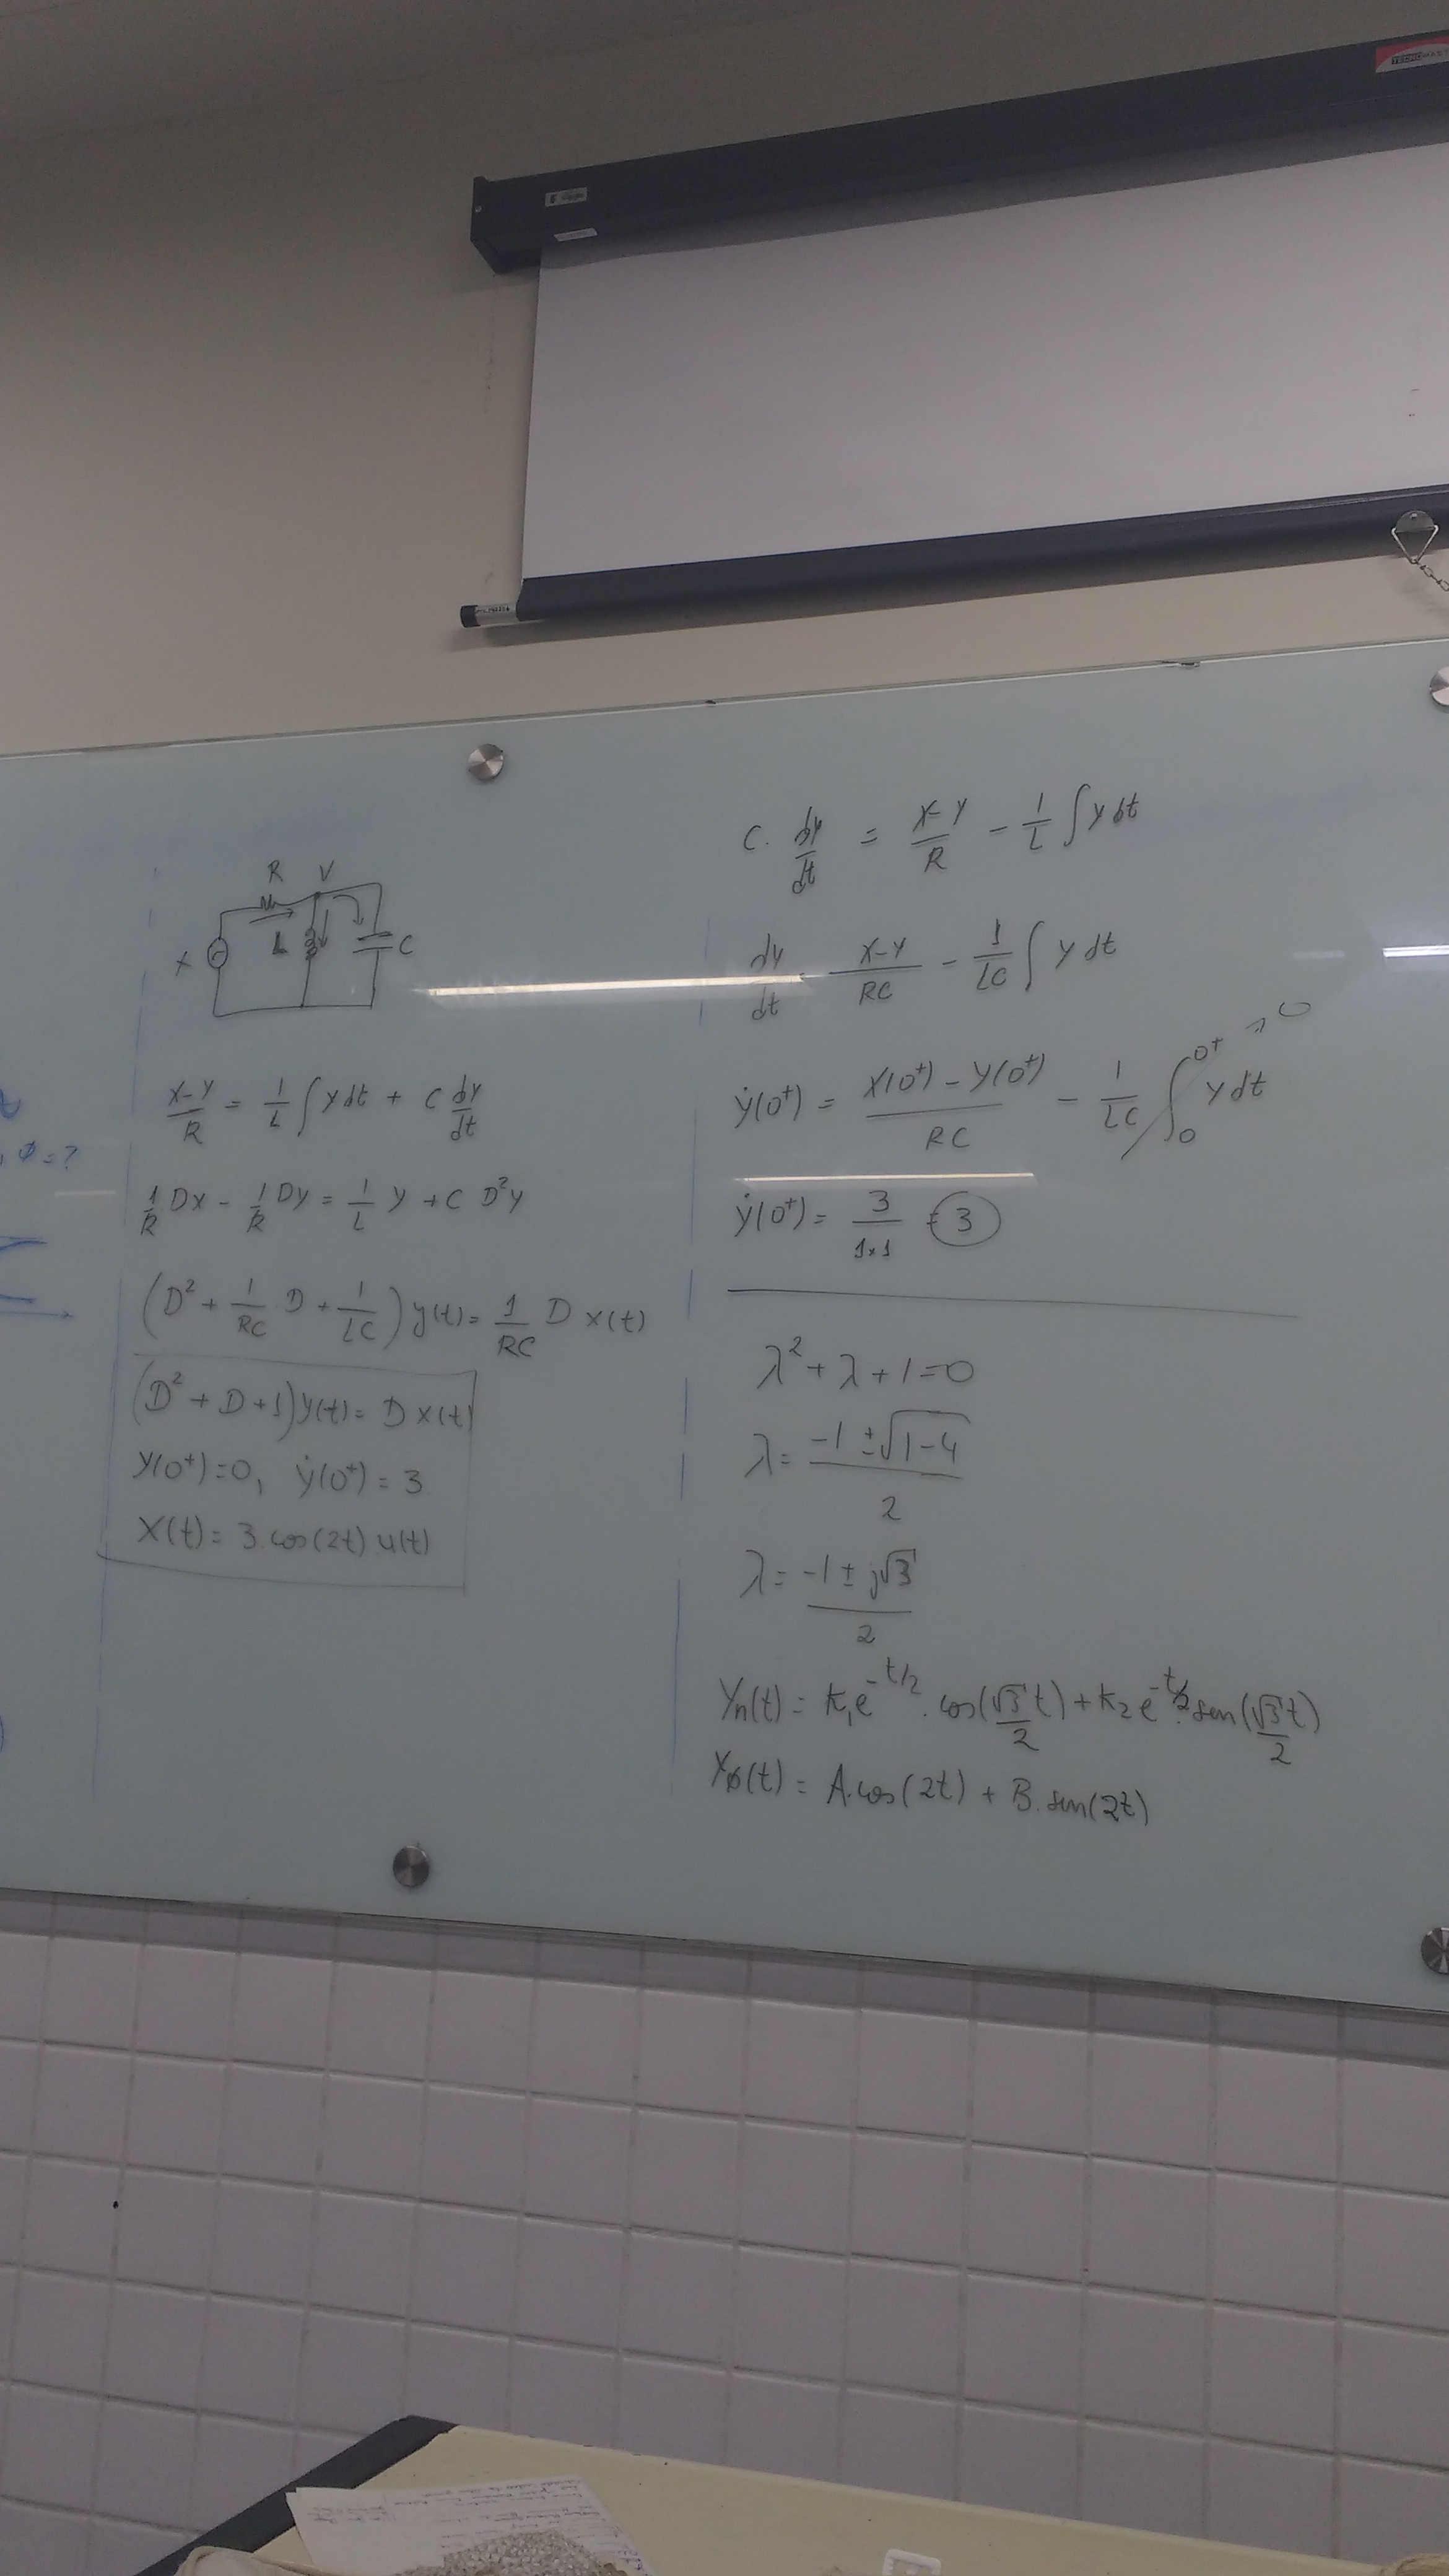 R V
X L C
X-Y/R = 1/L ∫ Y dt + C dy/dt
1/R DX - 1/R DY = 1/L Y + C D²Y
(D² + 1/RC D + 1/LC) y(t) = 1/RC D X(t)
(D² + D + 1) Y(t) = D X(t)
Y(0⁺) = 0, ẏ(0⁺) = 3
X(t) = 3.cos(2t).u(t)
C. dy/dt = X-Y/R - 1/L ∫ Y dt
dy/dt = X-Y/RC - 1/LC ∫ Y dt
ẏ(0⁺) = X(0⁺) - Y(0⁺)/RC - 1/LC ∫₀^0⁺ Y dt → 0
ẏ(0⁺) = 3/1×1 = 3
λ² + λ + 1 = 0
λ = -1 ± √1-4 / 2
λ = -1 ± j√3 / 2
Yn(t) = K₁e^-t/2 . cos(√3/2 t) + K₂ e^-t/2 . sen(√3/2 t)
Yø(t) = A.cos(2t) + B.sen(2t)
, ø = ?